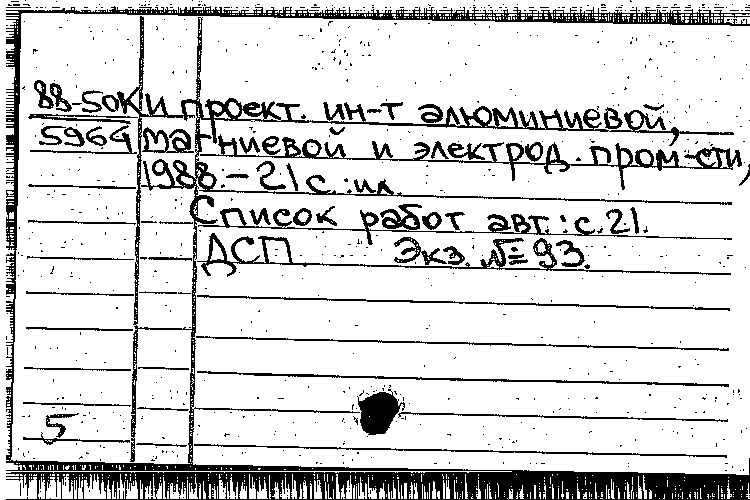 88-50К и проект. ин-т алюминиевой,
5964 магниевой и электрод. пром-сти,
1988.-21с.:ил.
Список работ авт.: с.21.
ДСП. Экз. №93.
5